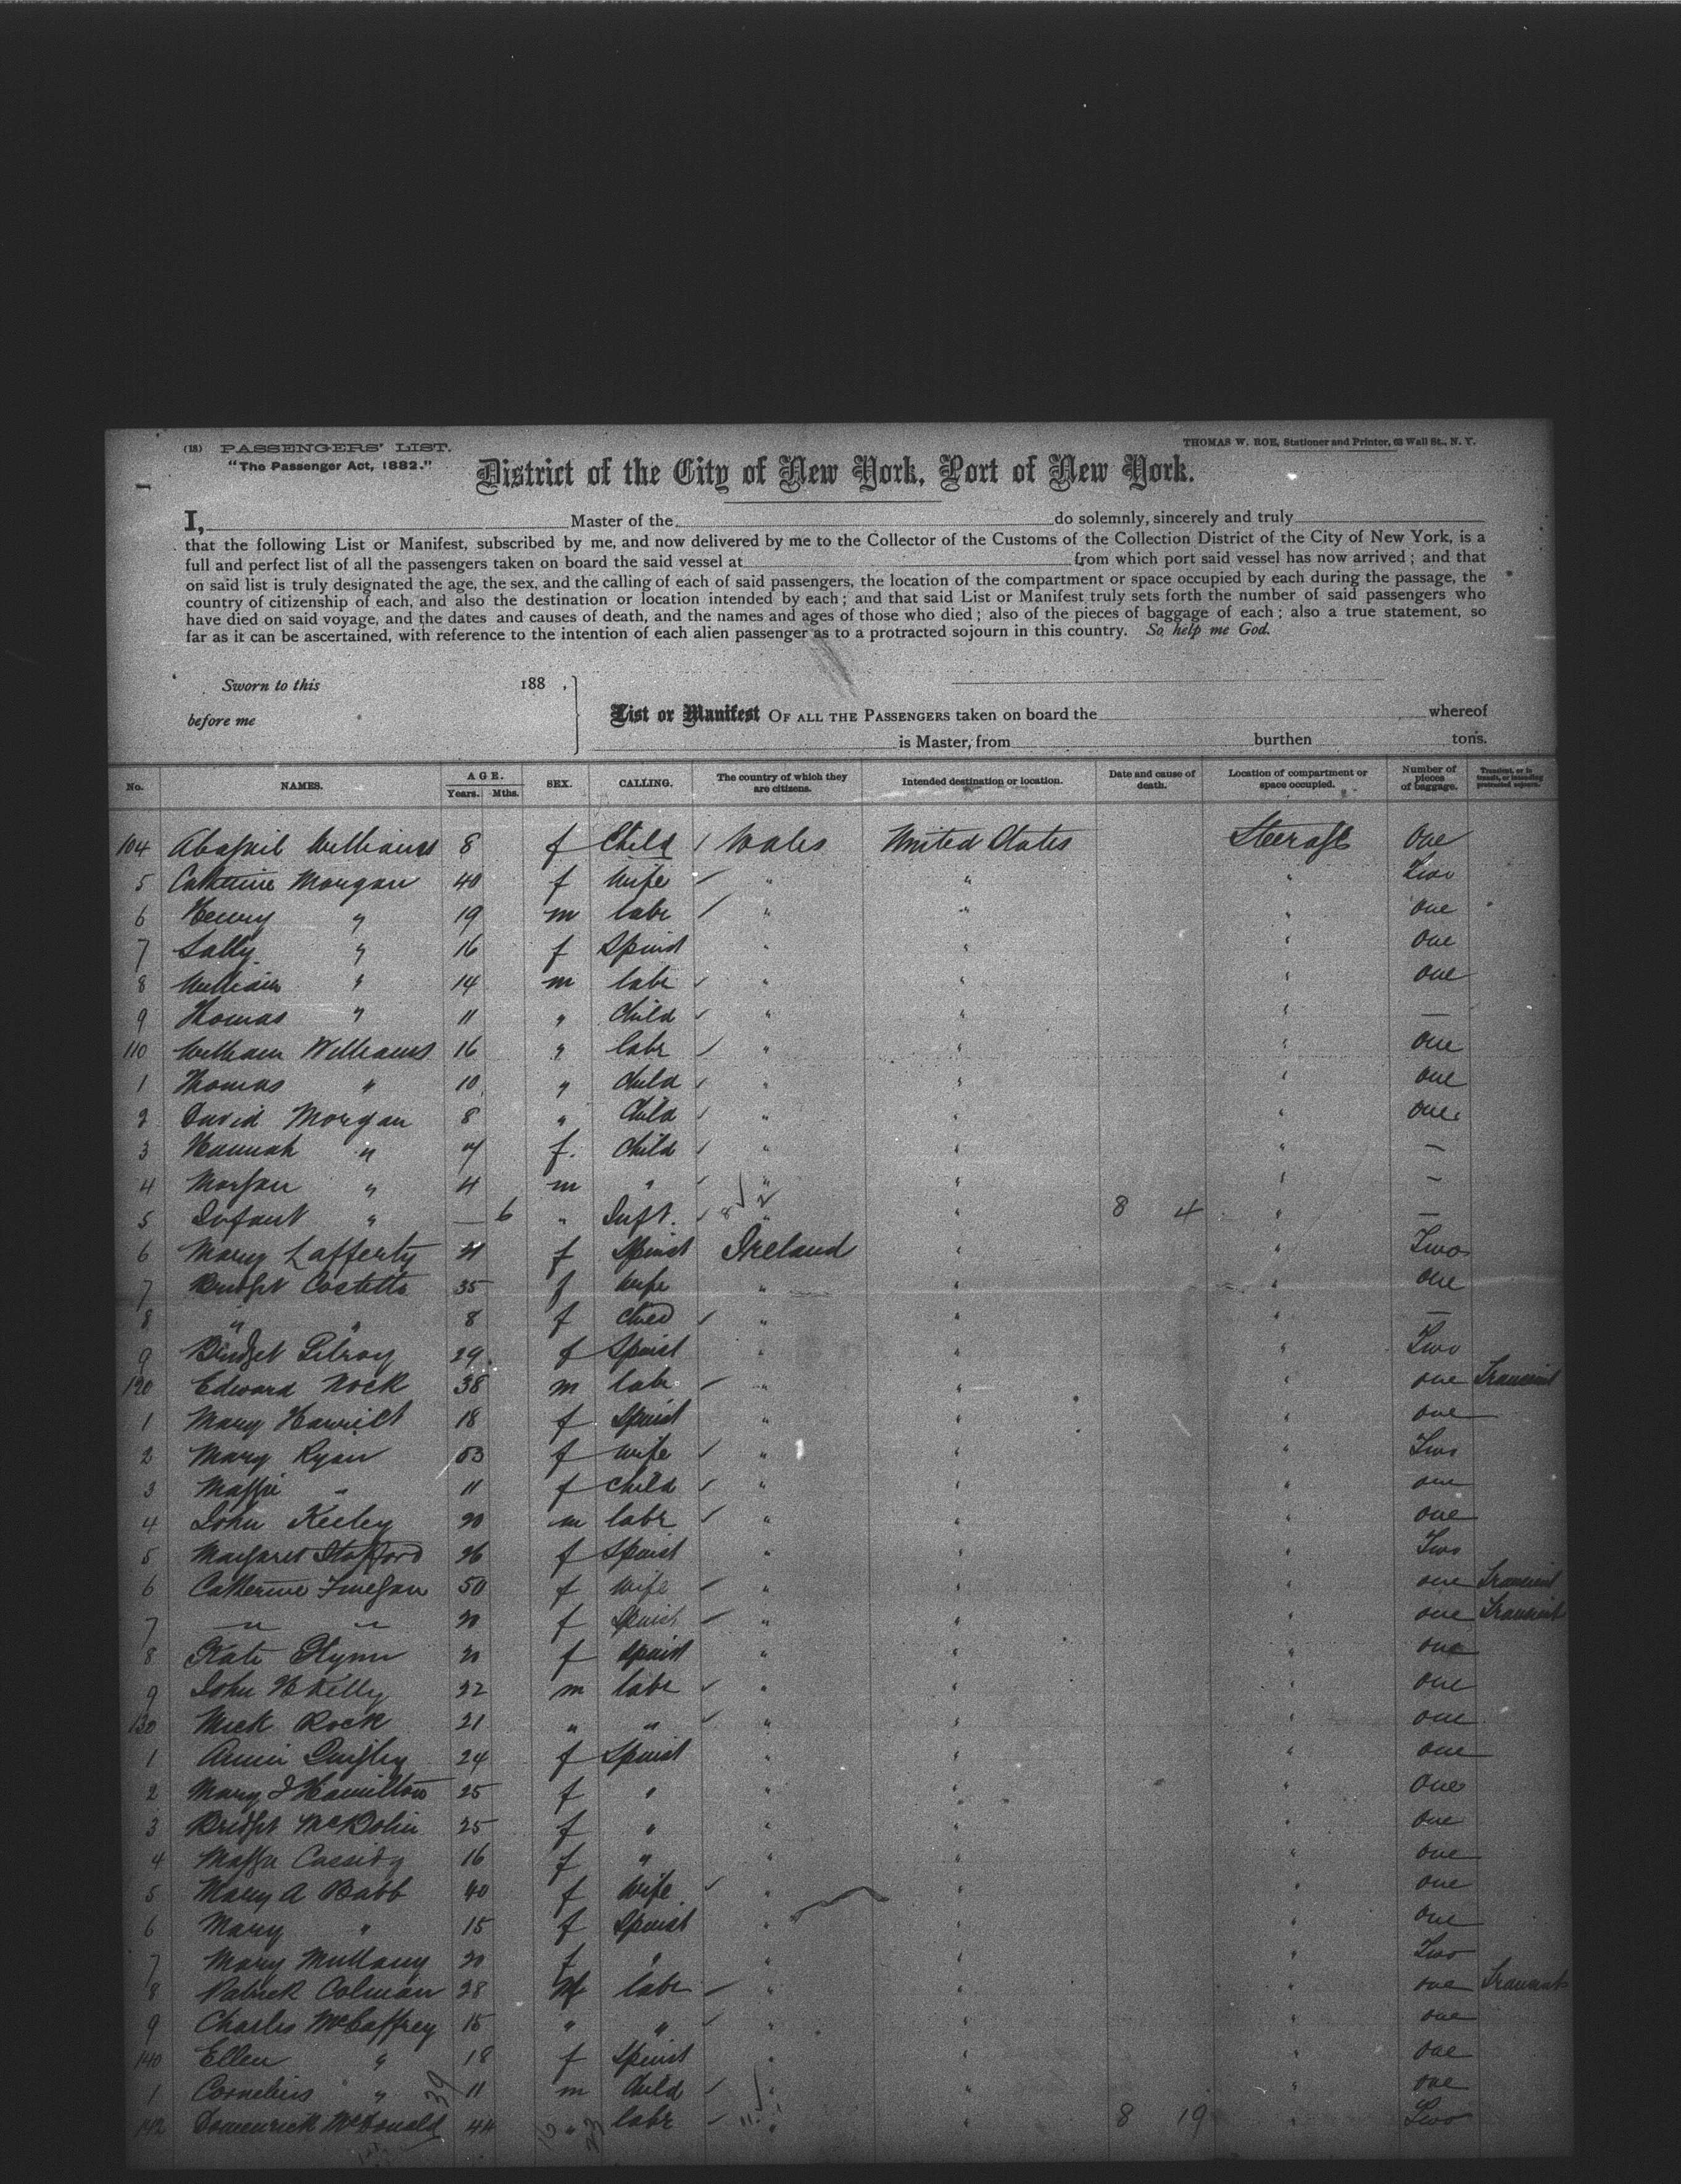 (18) PASSENGERS' LIST. THOMAS W. ROE, Stationer and Printer, 63 Wall St., N. Y.
"The Passenger Act, 1882."
District of the City of New York, Port of New York.
I, Master of the do solemnly, sincerely and truly
that the following List or Manifest, subscribed by me, and now delivered by me to the Collector of the Customs of the Collection District of the City of New York, is a
full and perfect list of all the passengers taken on board the said vessel at from which port said vessel has now arrived ; and that
on said list is truly designated the age, the sex, and the calling of each of said passengers, the location of the compartment or space occupied by each during the passage, the
country of citizenship of each, and also the destination or location intended by each ; and that said List or Manifest truly sets forth the number of said passengers who
have died on said voyage, and the dates and causes of death, and the names and ages of those who died ; also of the pieces of baggage of each ; also a true statement, so
far as it can be ascertained, with reference to the intention of each alien passenger as to a protracted sojourn in this country. So help me God.
Sworn to this 188 ,
before me
List or Manifest OF ALL THE PASSENGERS taken on board the whereof
is Master, from burthen tons.
No. NAMES. AGE. Years. Mths. SEX. CALLING. The country of which they are citizens. Intended destination or location. Date and cause of death. Location of compartment or space occupied. Number of pieces of baggage. Transient, or in transit, or intending protracted sojourn.
104 Abagail Williams 8 f Child Wales United States Steerage One
5 Catherine Morgan 40 f Wife " " " Two
6 Henry " 19 m labr " " " one
7 Sally " 16 f Spinst " " " One
8 William " 14 m labr " " " one
9 Thomas " 11 " Child " " " —
110 William Williams 16 " labr " " " one
1 Thomas " 10 " Child " " " one
2 David Morgan 8 " Child " " " one
3 Hannah " 7 f. Child " " " —
4 Morgan " 4 m " " " " —
5 Infant " — 6 " Inft. " " 8 4 " —
6 Mary Lafferty 21 f Spinst Ireland " " Two
7 Bridget Costello 35 f Wife " " " one
8 " " 8 f Child " " " —
9 Bridget Gilroy 29 f Spinst " " " Two
120 Edward Nock 38 m labr " " " one Transient
1 Mary 18 f Spinst " " " one
2 Mary Ryan 53 f wife " " " Two
3 Maggie " 11 f child " " " one
4 John Keeley 20 m labr " " " one
5 Margaret Stafford 26 f Spinst " " " Two
6 Catherine Finegan 50 f Wife " " " one Transient
7 " " 20 f Spinst " " " one Transient
8 Kate Glynn 20 f spinst " " " one
9 John H Kelly 22 m labr " " " one
130 Mick Rock 21 " " " " " one
1 Annie Quigley 24 f Spinst " " " one
2 Mary J Hamilton 25 f " " " " One
3 Bridget 25 f " " " " one
4 Maggie Cassidy 16 f " " " " one
5 Mary A Babb 40 f Wife " " " one
6 Mary " 15 f Spinst " " " one
7 Mary Mullany 20 f " " " " Two
8 Patrick Colman 28 M labr " " " one Transient
9 Charles McCaffrey 15 " " " " " one
140 Ellen " 18 f Spinst " " " one
1 Cornelius " 11 m Child " " " one
142 McDonald 44 " labr " " 8 19 " Two